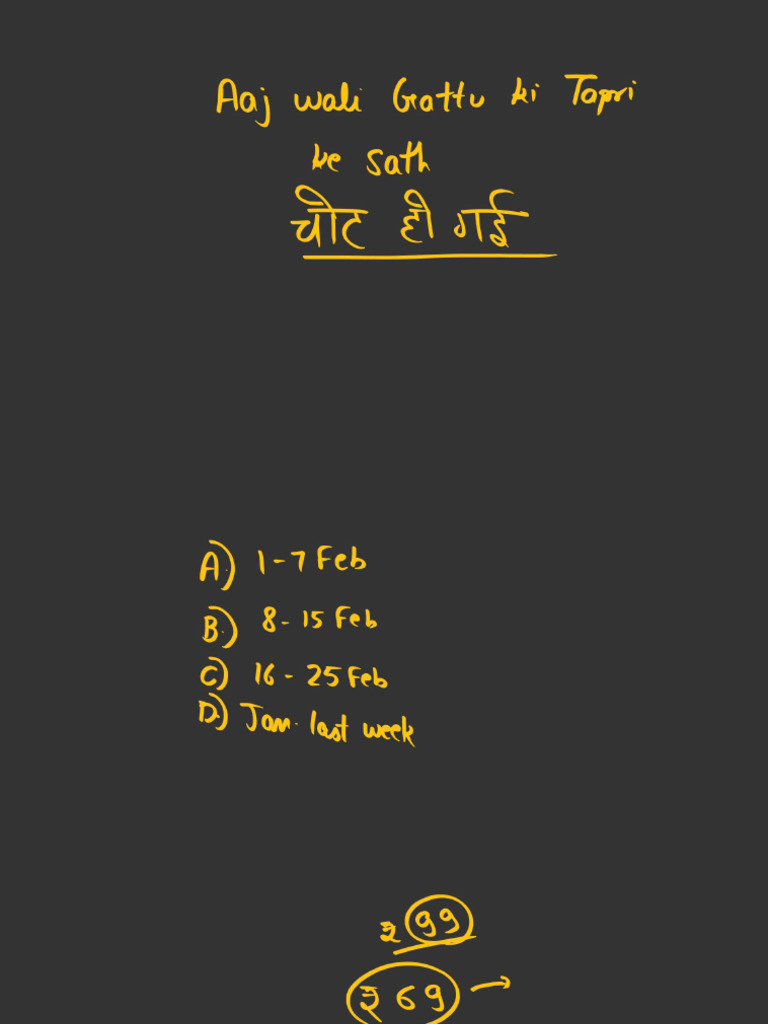 Aaj wali Gattu ki Tapri
ke sath
चोट हो गई
A.) 1-7 Feb
B.) 8-15 Feb
C) 16-25 Feb
D.) Jan. last week
₹ 99
₹ 69 →